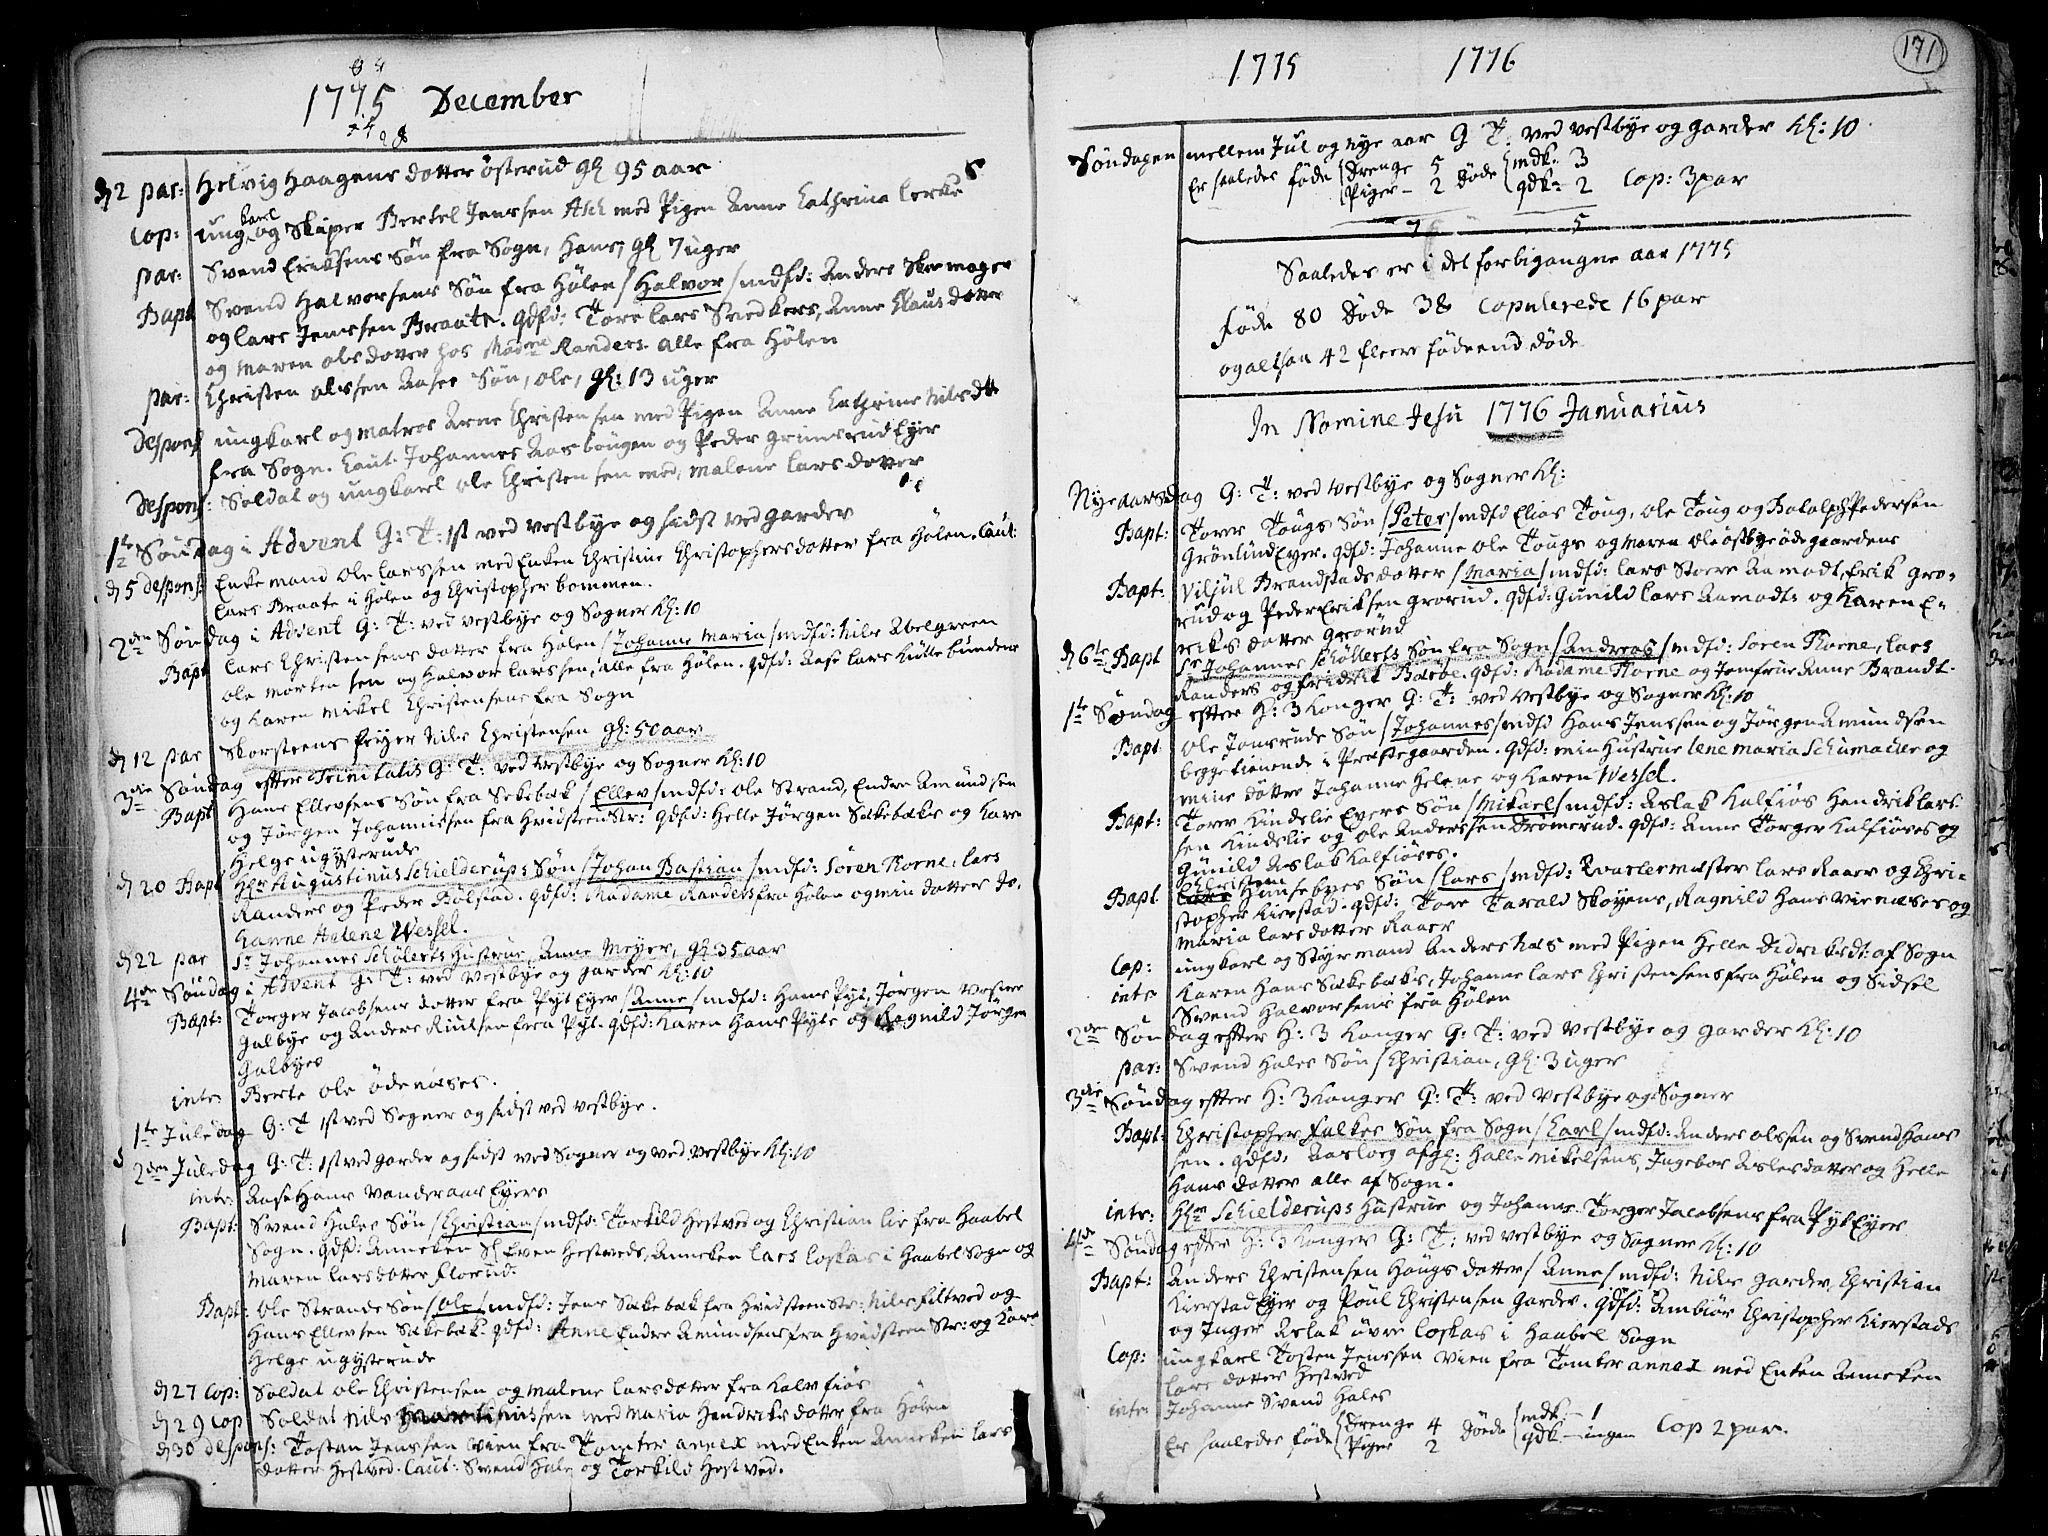 1775 December
d 2 par: Helvig Haagens dotter österud gl 95 aar
Cop: ung karl og Skiper Bertel Jenssen Ash med Pigen Anne Cathrina Lerke
par: Svend Eriksens Søn fra Sogn, Hans, gl 7 uger
Bapt Svend Halvorsens Søn fra Hølen /Halvor/ mdfd: Anders Skomager
og Lars Jenssen Braate. qdfd: Tore Lars Snedkers, Anne Clausdotter
og Maren olsdotter hos Madme Randers alle fra Hølen
par: Christen olssen Aases Søn, ole, gl: 13 uger
Despons ungkarl og Matros Arne Christensen med Pigen Anne Cathrine Nilsdtr
fra Sogn. Caut. Johannes Aasbougen og Peder Grimsrud Eyer
Despons: Soldat og ungkarl ole Christensen med, Malene Larsdotter
1te Søndag i Advent G: T: 1st ved Vestbye og sidst ved garder
d 5 despons: Enkemand ole Larssen med Enken Christine Christophersdotter fra Hølen. Caut:
Lars Braate i Hølen og Christopher bommen.
2den Søndag i Advent G: T: ved Vestbye og Sogner Kl: 10
Bapt Lars Christensens dotter fra Hølen /Johanne Maria/ mdfd: Nils Abelgreen
ole Mortensen og Halvor Larssen, alle fra Hølen. qdfd: Aase Lars Küllebunden
og Karen Mikel Christensens fra Sogn
d 12 par Skorsteens feiyer Nils Christensen gl: 50 aar
3die Søndag efter Trinitatis G: T: ved Vestbye og Sogner Kl: 10
Bapt Hans Ellevsens Søn fra Sekebek /Ellev/ mdfd: ole Strand, Endre Amundsen
og Jørgen Johannissen fra Hvidsteen Str: qdfd: Helle Jørgen Sækebæks og Kari
Helge ugysterude
d 20 Bapt Hr Augustinus Schielderups Søn /Johan Bastian/ mdfd: Sören Thorne, Lars
Randers og Peder Bölstad. qdfd: Madame Randers fra Hølen og min dotter Jo-
hanne Helene Wessel.
d 22 par Sr Johannes Schölerts Hustrue, Anne Meyer, gl 35 aar
4de Søndag i Advent G: T: ved Vestbye og garder Kl: 10
Bapt: Torger Jacobsens dotter fra Pyt Eyer /Anne/ mdfd: Hans Pyt, Jørgen Vestre
Galbye og Anders fra Pyt. qdfd: Karen Hans Pyts og Ragnild Jørgen
Galbyes
intr Berte ole ödenæses.
1te Juledag G: T 1st ved Sogner og sidst ved Vestbye.
2den Juledag G: T: 1st ved garder og sidst ved Sogner og ved Vestbye Kl: 10
intr: Aase Hans Vanderaas Eyers
Bapt: Svend Hales Søn /Christian/ mdfd: Torkild Hestved og Christian lie fra Haabel
Sogn. qdfd: Anneken Sl Even Hestveds, Anneken Lars Loskas i Haabel Sogn og
Maren Larsdotter Florud.
Bapt: Ole Strands Søn /ole/ mdfd: Jens Sækebæk fra Hvidsteen Str: Nils Filtved og
Hans Ellevsen Sækebæk. qdfd: Anne Endre Amundsens fra Hvidsteen Str: og Kari
Helge ugysterude
d 27 Cop: Soldat ole Christensen og Malene Larsdotter fra Kalvfiøs
d 29 Cop Soldat Nils Martinussen med Maria Hendriksdotter fra Hölen
d 30 despons: Tostan Jenssen Vien fra Tomter annex med Enken Anneken Lars
dotter Hestved. Caut: Svend Hale og Torkild Hestved.
1775 1776
171
Søndagen mellem Jul og nye aar G T: ved Vestbye og garder Kl: 10
Er saaledes føde Drenge 5 Døde mdk: 3
Piger - 2 qdk: 2 Cop: 3 par
7 5
Saaledes er i det forbigangne aar 1775
føde 80 Døde 38 Copulerede 16 par
og altsaa 42 fleere föde end döde
In Nomine Jesu 1776 Januarius
Nye aarsdag G: T: ved Vestbye og Sogner Kl:
Bapt: Torer Tougs Søn /Peter/ mdfd Elias Toug, ole Toug og Pedersen
Grönlund Eyer. qdfd: Johanne ole Tougs og Maren ole östbye ödegaardens
Bapt: Viljul Brandstads dotter /Maria/ mdfd: Lars Store Aamodt, Erik Gro-
rud og Peder Eriksen Grorud. qdfd: Gunild Lars Aamodts og Karen E-
riks dotter Grorud
d 6te Bapt Sr Johannes Schöllerts Søn fra Sogn /Andreas/ mdfd: Sören Thorne, Lars
Randers og Fridrik Bæcöe. qdfd: Madame Thorne og Jomfrue Anne Brandt.
1te Søndag efter H: 3 Konger G: T: ved Vestbye og Sogner Kl: 10
Bapt Ole Jonsruds Søn /Johannes/ mdfd Hans Jenssen og Jörgen Amundsen
begge tienende i Præstegaarden. qdfd: min Hustrue Lene Maria Schumacher og
mine dötter Johanne Helene og Karen Wessel.
Bapt: Torer Kindslie Eyers Søn /Mikael/ mdfd: Aslak Kalfiøs Hendrik Lars-
sen Kindslie og ole Anderssen Drömerud. qdfd: Anne Torger Kalfiøses og
Gunild Aslak Kalfiøses.
Bapt Christen Hunsebyes Søn /Lars/ mdfd: Qvartermester Lars Raaer og Chri-
stopher Kierstad. qdfd: Tore Tarald Skøyens, Ragnild Hans Viernæses og
Maria Larsdotter Raaer
Cop: ungkarl og Styrmand Anders Næs med Pigen Helle Didriksdt: af Sogn
intr Karen Hans Sækebæks, Johanne Lars Christensens fra Hølen og Sidsel
Svend Halvorsens fra Hølen
2den Søndag efter H: 3 Konger G: T: ved Vestbye og garder Kl: 10
par: Svend Hales Søn /Christian, gl: 3 uger
3die Søndag efter H: 3 Konger G: T: ved Vestbye og Sogner
Bapt: Christopher Falkes Søn fra Sogn /Carl/ mdfd: Anders olssen og Svend Hans
sen. qdfd: Aaslog afgl: Halle Mikelsens, Ingebor Aslesdotter og Helle
Hans dotter alle af Sogn.
intr: Hr Schielderups Hustrue og Johanne Torger Jacobsens fra Pyt Eyer
4de Søndag efter H: 3 Konger G: T: ved Vestbye og Sogner Kl: 10
Bapt: Anders Christensen Hougs dotter /Anne/ mdfd: Nils Garder, Christian
Kierstad Eyer og Poul Christensen Garder. qdfd: Ambiør Christopher Kierstads
og Inger Aslak övre Loskas i Haabel Sogn
Cop: ungkarl Tosten Jenssen Vien fra Tomter annex med Enken Anneken
Lars dotter Hestved
intr Johanne Svend Hales
Er saaledes föde Drenge 4 Døde mdk. - 1
Piger 2 qdk - ingen Cop 2 par.